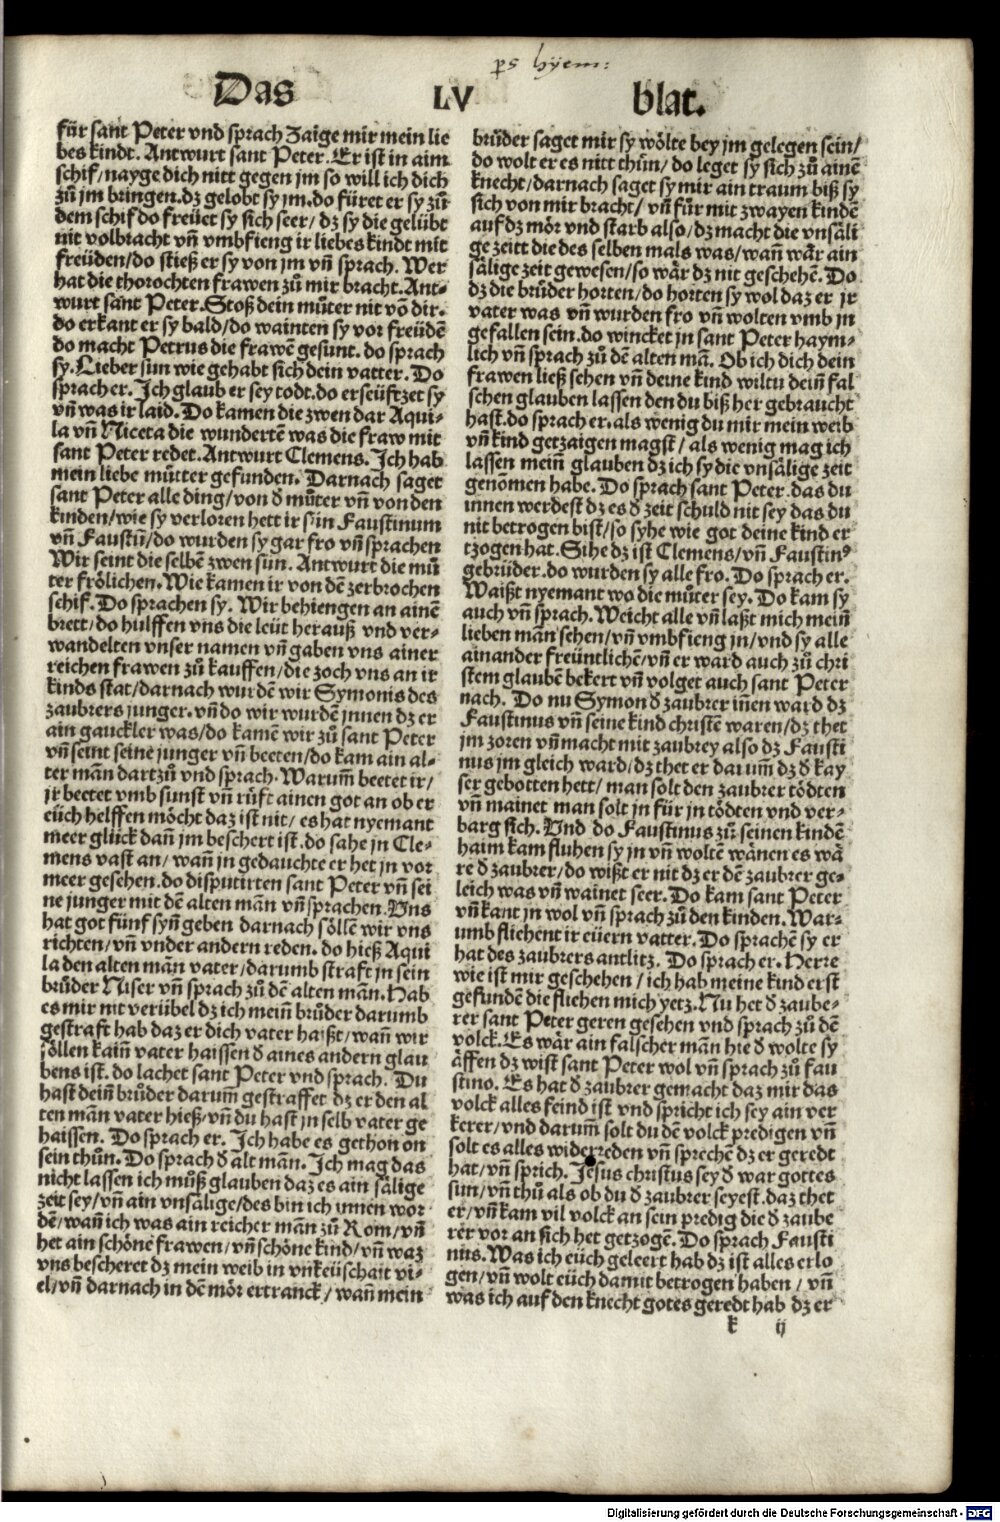 ps hyem:
Das LV blat.
für sant Peter vnd sprach Zaige mir mein lie
bes kindt. Antwurt sant Peter. Er ist in aim
schif/nayge dich nitt gegen jm so will ich dich
zů jm bringen.dz gelobt sy jm.do füret er sy zů
dem schif do freüet sy sich seer/dz sy die gelübt
nit volbracht vñ vmbfieng ir liebes kindt mit
freüden/do stieß er sy von jm vñ sprach. Wer
hat die thorochten frawen zů mir bracht.Ant-
wurt sant Peter.Stoß dein můter nit võ dir.
do erkant er sy bald/do wainten sy vor freüdẽ
do macht Petrus die frawẽ gesunt. do sprach
sy.Lieber sun wie gehabt sich dein vatter. Do
sprach er. Ich glaub er sey todt.do erseüftzet sy
vñ was ir laid. Do kamen die zwen dar Aqui-
la vñ Niceta die wundertẽ was die fraw mit
sant Peter redet.Antwurt Clemens. Ich hab
mein liebe můtter gefunden. Darnach saget
sant Peter alle ding/von d̄ můter vñ von den
kinden/wie sy verloren hett ir sün Faustinum
vñ Faustũ/do wurden sy gar fro vñ sprachen
Wir seint die selbẽ zwen sün. Antwurt die mů
ter frölichen.Wie kamen ir von dẽ zerbrochen
schif.Do sprachen sy. Wir behiengen an ainẽ
brett/do hulffen vns die leüt herauß vnd ver-
wandelten vnser namen vñ gaben vns ainer
reichen frawen zů kauffen/die zoch vns an ir
kinds stat/darnach wurdẽ wir Symonis des
zaubrers junger.vñ do wir wurdẽ jnnen dz er
ain gauckler was/do kamẽ wir zů sant Peter
vñ seint seine junger vñ beeten/do kam ain al-
ter man dartzů vnd sprach.Warum̃ beetet ir/
jr beetet vmb sunst vñ rüft ainen got an ob er
eüch helffen möcht daz ist nit/es hat nyemant
meer glück dañ jm beschert ist.do sahe jn Cle-
mens vast an/wañ jn gedauchte er het jn vor
meer gesehen.do disputirten sant Peter vñ sei
ne junger mit dẽ alten man vñ sprachen.Vns
hat got fünf syñ geben darnach söllẽ wir vns
richten/vñ vnder andern reden.do hieß Aqui
la den alten man vater/darumb straft jn sein
brůder Niser vñ sprach zů dẽ alten man.Hab
es mir nit verübel dz ich mein̄ brůder darumb
gestraft hab daz er dich vater haißt/wañ wir
söllen kain̄ vater haissen d̄ aines andern glau
bens ist.do lachet sant Peter vnd sprach. Du
hast dein̄ brůder darum̃ gestraffet dz er den al
ten man vater hieß/vñ du hast jn selb vater ge
haissen. Do sprach er. Ich habe es gethon on
sein thůn.Do sprach d̄ alt man.Ich mag das
nicht lassen ich můß glauben daz es ain sälige
zeit sey/vñ ain vnsälige/des bin ich innen wor
dẽ/wañ ich was ain reicher man zů Rom/vñ
het ain schöne frawen/vñ schöne kind/vñ waz
vns bescheret dz mein weib in vnkeüschait vi-
el/vñ darnach in dẽ mör ertranck/wañ mein
brůder saget mir sy wölte bey jm gelegen sein/
do wolt er es nitt thůn/do leget sy sich zů ainẽ
knecht/darnach saget sy mir ain traum biß sy
sich von mir bracht/vñ für mit zwayen kindẽ
auf dz mör vnd starb also/dz macht die vnsäli
ge zeitt die des selben mals was/wañ wär ain
sälige zeit gewesen/so wär dz nit geschehẽ. Do
dz die brůder horten/do horten sy wol daz er jr
vater was vñ wurden fro vñ wolten vmb jn
gefallen sein.do wincket jn sant Peter haym-
lich vñ sprach zů dẽ alten mã. Ob ich dich dein
frawen ließ sehen vñ deine kind wiltu dein̄ fal
schen glauben lassen den du biß her gebraucht
hast.do sprach er.als wenig du mir mein weib
vñ kind getzaigen magst/als wenig mag ich
lassen mein̄ glauben dz ich sy die vnsälige zeit
genomen habe. Do sprach sant Peter.das du
innen werdest dz es d̄ zeit schuld nit sey das du
nit betrogen bist/so syhe wie got deine kind er
tzogen hat.Sihe dz ist Clemens/vñ Faustinꝰ
gebrůder.do wurden sy alle fro. Do sprach er.
Waißt nyemant wo die můter sey. Do kam sy
auch vñ sprach.Weicht alle vñ laßt mich mein̄
lieben man sehen/vñ vmbfieng jn/vnd sy alle
ainander freüntlichẽ/vñ er ward auch zů chri
stem glaubẽ bekert vñ volget auch sant Peter
nach. Do nu Symon d̄ zaubrer iñen ward dz
Faustinus vñ seine kind christẽ waren/dz thet
jm zoren vñ macht mit zaubrey also dz Fausti
nus jm gleich ward/dz thet er darum̃ dz d̄ kay
ser gebotten hett/man solt den zaubrer tödten
vñ mainet man solt jn für jn tödten vnd ver-
barg sich. Vnd do Faustinus zů seinen kindẽ
haim kam fluhen sy jn vñ woltẽ wänen es wä
re d̄ zaubrer/do wißt er nit dz er dẽ zaubrer ge-
leich was vñ wainet seer. Do kam sant Peter
vñ kant jn wol vñ sprach zů den kinden.War-
umb fliehent ir eüern vatter.Do sprachẽ sy er
hat des zaubrers antlitz. Do sprach er. Herre
wie ist mir geschehen/ich hab meine kind erst
gefundẽ die fliehen mich yetz.Nu het d̄ zaube-
rer sant Peter geren gesehen vnd sprach zů dẽ
volck.Es wär ain falscher man hie d̄ wolte sy
äffen dz wist sant Peter wol vñ sprach zů fau
stino. Es hat d̄ zaubrer gemacht daz mir das
volck alles feind ist vnd spricht ich sey ain ver
kerer/vnd darum̃ solt du dẽ volck predigen vñ
solt es alles widerreden vñ sprechẽ dz er geredt
hat/vñ sprich. Jesus christus sey d̄ war gottes
sun/vñ thů als ob du d̄ zaubrer seyest.daz thet
er/vñ kam vil volck an sein predig die d̄ zaube
rer vor an sich het getzogẽ.Do sprach Fausti
nus.Was ich eüch geleert hab dz ist alles erlo
gen/vñ wolt eüch damit betrogen haben/vñ
was ich auf den knecht gotes geredt hab dz er
k ij
Digitalisierung gefördert durch die Deutsche Forschungsgemeinschaft - DFG